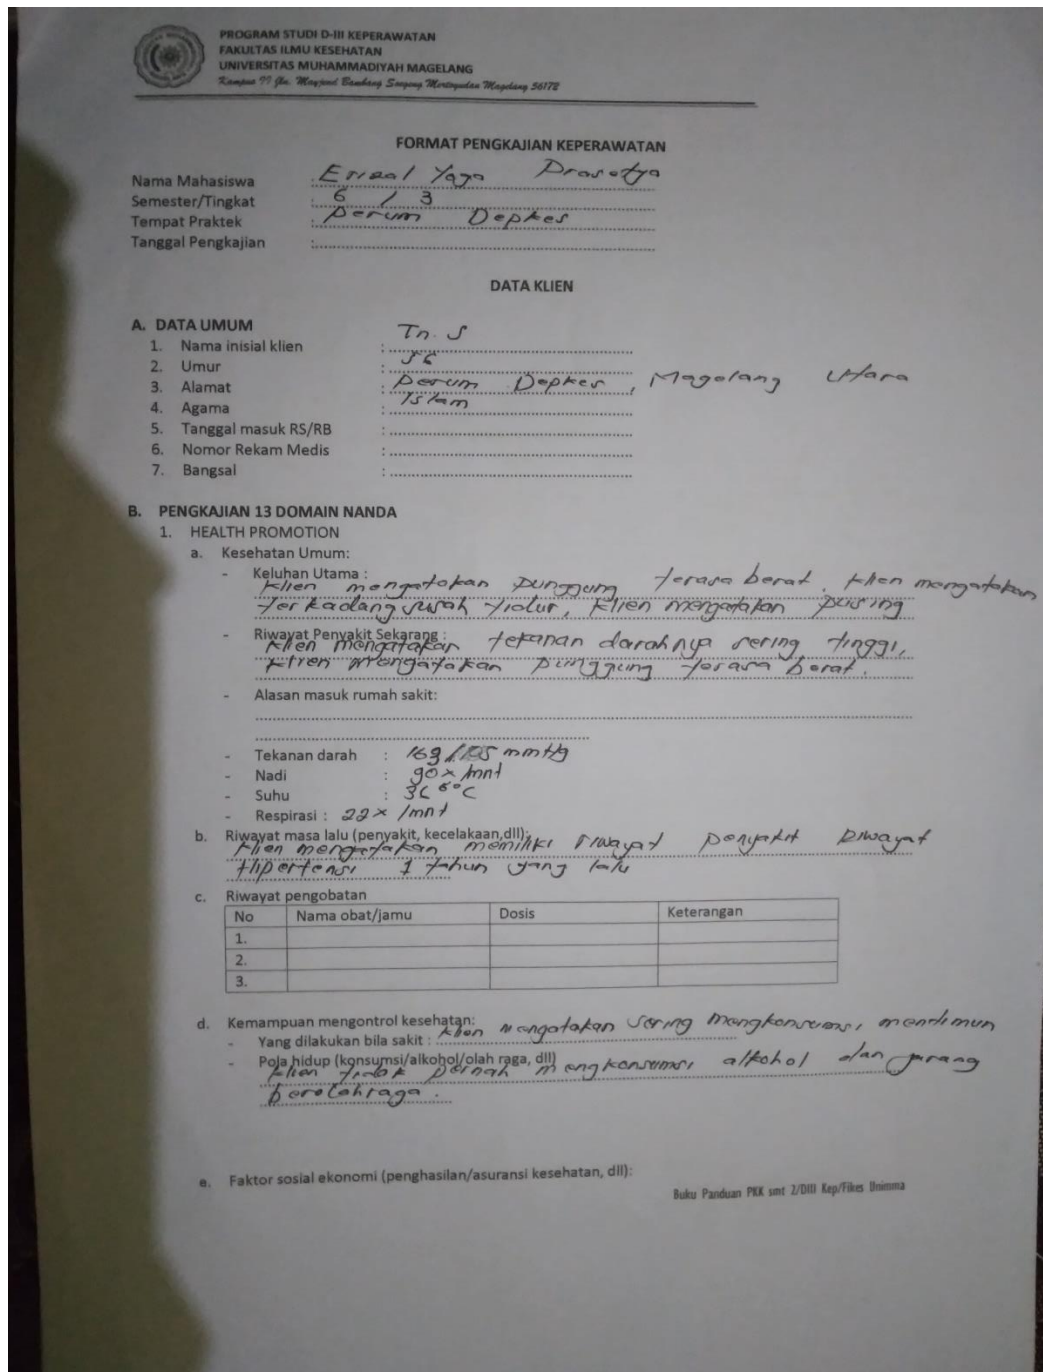 PROGRAM STUDI D-III KEPERAWATAN
FAKULTAS ILMU KESEHATAN
UNIVERSITAS MUHAMMADIYAH MAGELANG
Kampus Jln. Mayjend Bambang Soegeng Mertoyudan Magelang 56172
FORMAT PENGKAJIAN KEPERAWATAN
Nama Mahasiswa : Erizal Yaga Prasetya
Semester/Tingkat : 6 / 3
Tempat Praktek : perum Depkes
Tanggal Pengkajian :
DATA KLIEN
A. DATA UMUM
1. Nama inisial klien : Tn. S
2. Umur :
3. Alamat : perum Depkes, Magelang Utara
4. Agama : Islam
5. Tanggal masuk RS/RB :
6. Nomor Rekam Medis :
7. Bangsal :
B. PENGKAJIAN 13 DOMAIN NANDA
1. HEALTH PROMOTION
a. Kesehatan Umum:
- Keluhan Utama :
klien mengatakan punggung terasa berat. klien mengatakan
terkadang susah tidur, klien mengatakan pusing
- Riwayat Penyakit Sekarang :
klien mengatakan tekanan darahnya sering tinggi,
klien mengatakan punggung terasa berat.
- Alasan masuk rumah sakit:
- Tekanan darah : mmHg
- Nadi : 90x/mnt
- Suhu : °C
- Respirasi : 22x /mnt
b. Riwayat masa lalu (penyakit, kecelakaan,dll):
klien mengatakan memiliki riwayat penyakit Riwayat
Hipertensi 1 tahun yang lalu
c. Riwayat pengobatan
No Nama obat/jamu Dosis Keterangan
1.
2.
3.
d. Kemampuan mengontrol kesehatan:
- Yang dilakukan bila sakit : klien mengatakan sering mengkonsumsi mentimun
- Pola hidup (konsumsi/alkohol/olah raga, dll)
klien tidak pernah mengkonsumsi alkohol dan jarang
berolahraga.
e. Faktor sosial ekonomi (penghasilan/asuransi kesehatan, dll):
Buku Panduan PKK smt 2/DIII Kep/Fikes Unimma